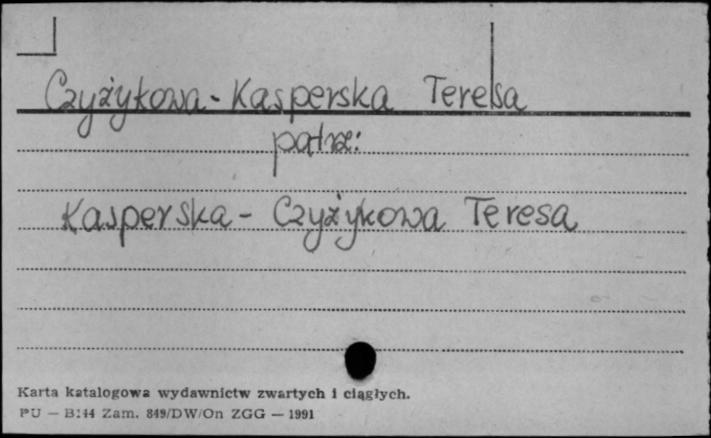 Czyżykowa-Kasperska Teresa
patrz:
Kasperska-Czyżykowa Teresa
Karta katalogowa wydawnictw zwartych i ciągłych.
PU — B144 Zam. 849/DW/On ZGG — 1991